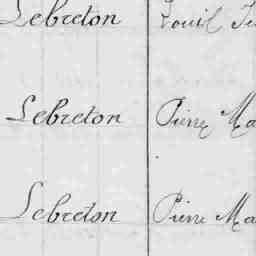 Lebreton Louis
Lebreton Pierre Ma
Lebreton Pierre Ma